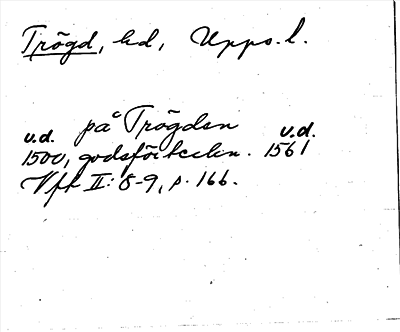 Trögd, hd, Upps. l.
på Trögden
u.d. u.d.
1500, godsförteckn. 1561
Vft II: 8-9, p. 166.